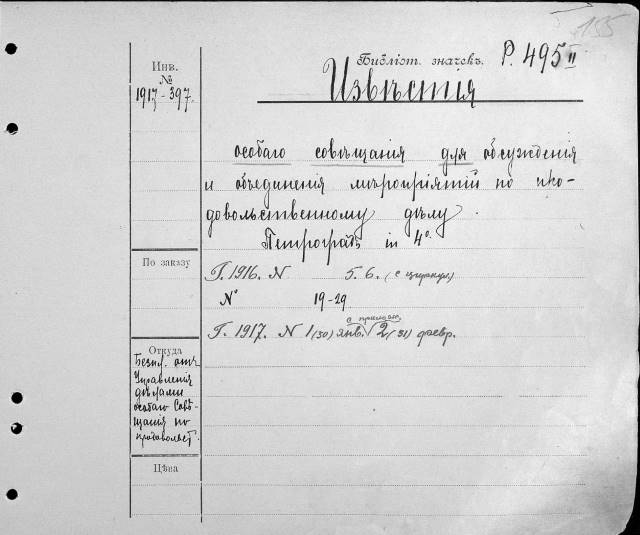 155
Библіот. значекъ. Р. 495 II
Извѣстія
Инв.
№
1917-397.
особаго совѣщанія для обсужденія
и объединенія мѣропріятій по про-
довольственному дѣлу.
Петроградъ in 4º.
По заказу
Г. 1916. N 5. 6. (с циркул)
№ 19-29
с прилож.
Г. 1917. N 1 (30) янв. 2 (31) февр.
Откуда
Безпл. отъ
Управленія
дѣлами
особаго Совѣ-
щанія по
продовольст.
Цѣна